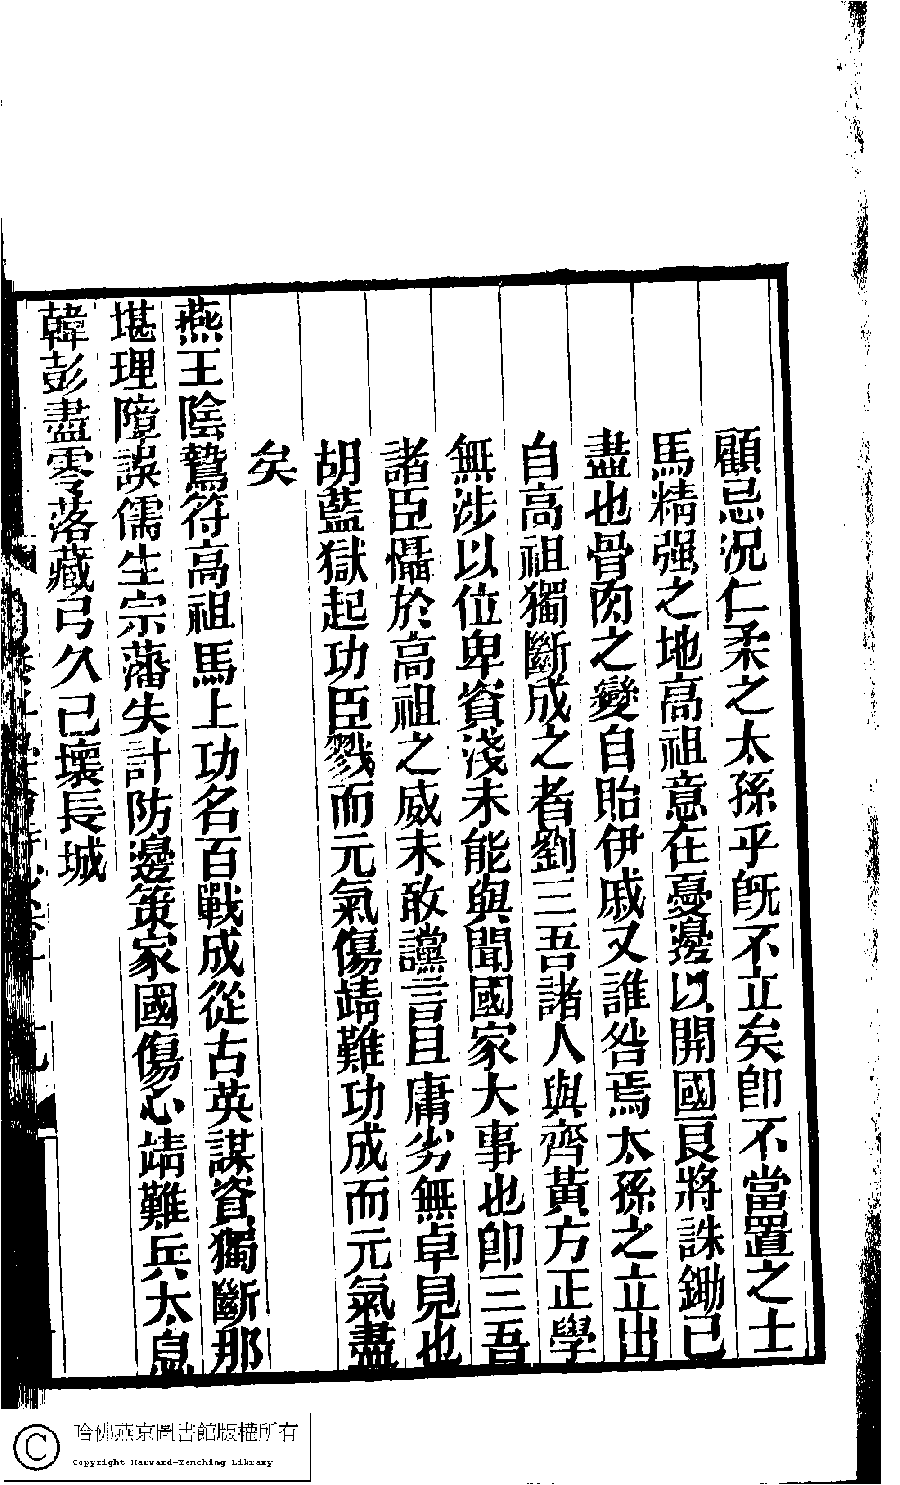 顧忌況仁柔之太孫乎旣不立矣卽不當置之士
馬精强之地高祖意在憂邊以開國良將誅鋤已
盡也骨肉之變自貽伊戚又誰咎焉太孫之立出
自高祖獨斷成之者劉三吾諸人與齊黃方正學
無涉以位卑資淺未能與聞國家大事也卽三吾
諸臣懾於高祖之威未敢讜言且庸劣無卓見也
胡藍獄起功臣戮而元氣傷靖難功成而元氣盡
矣
燕王陰鷙符高祖馬上功名百戰成從古英謀資獨斷那
堪理障誤儒生宗藩失計防邊策家國傷心靖難兵太息
韓彭盡零落藏弓久已壞長城
哈佛燕京圖書館版權所有
Copyright Harvard-Yenching Library